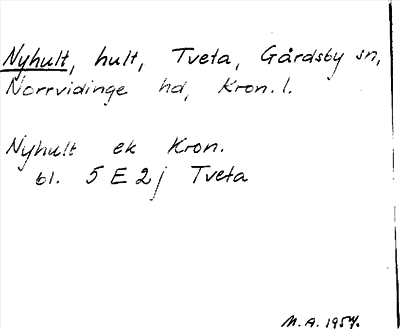 Nyhult, hult, Tveta, Gårdsby sn,
Norrvidinge hd, Kron. l.
Nyhult ek Kron.
bl. 5 E 2 j Tveta
M.A. 1954.